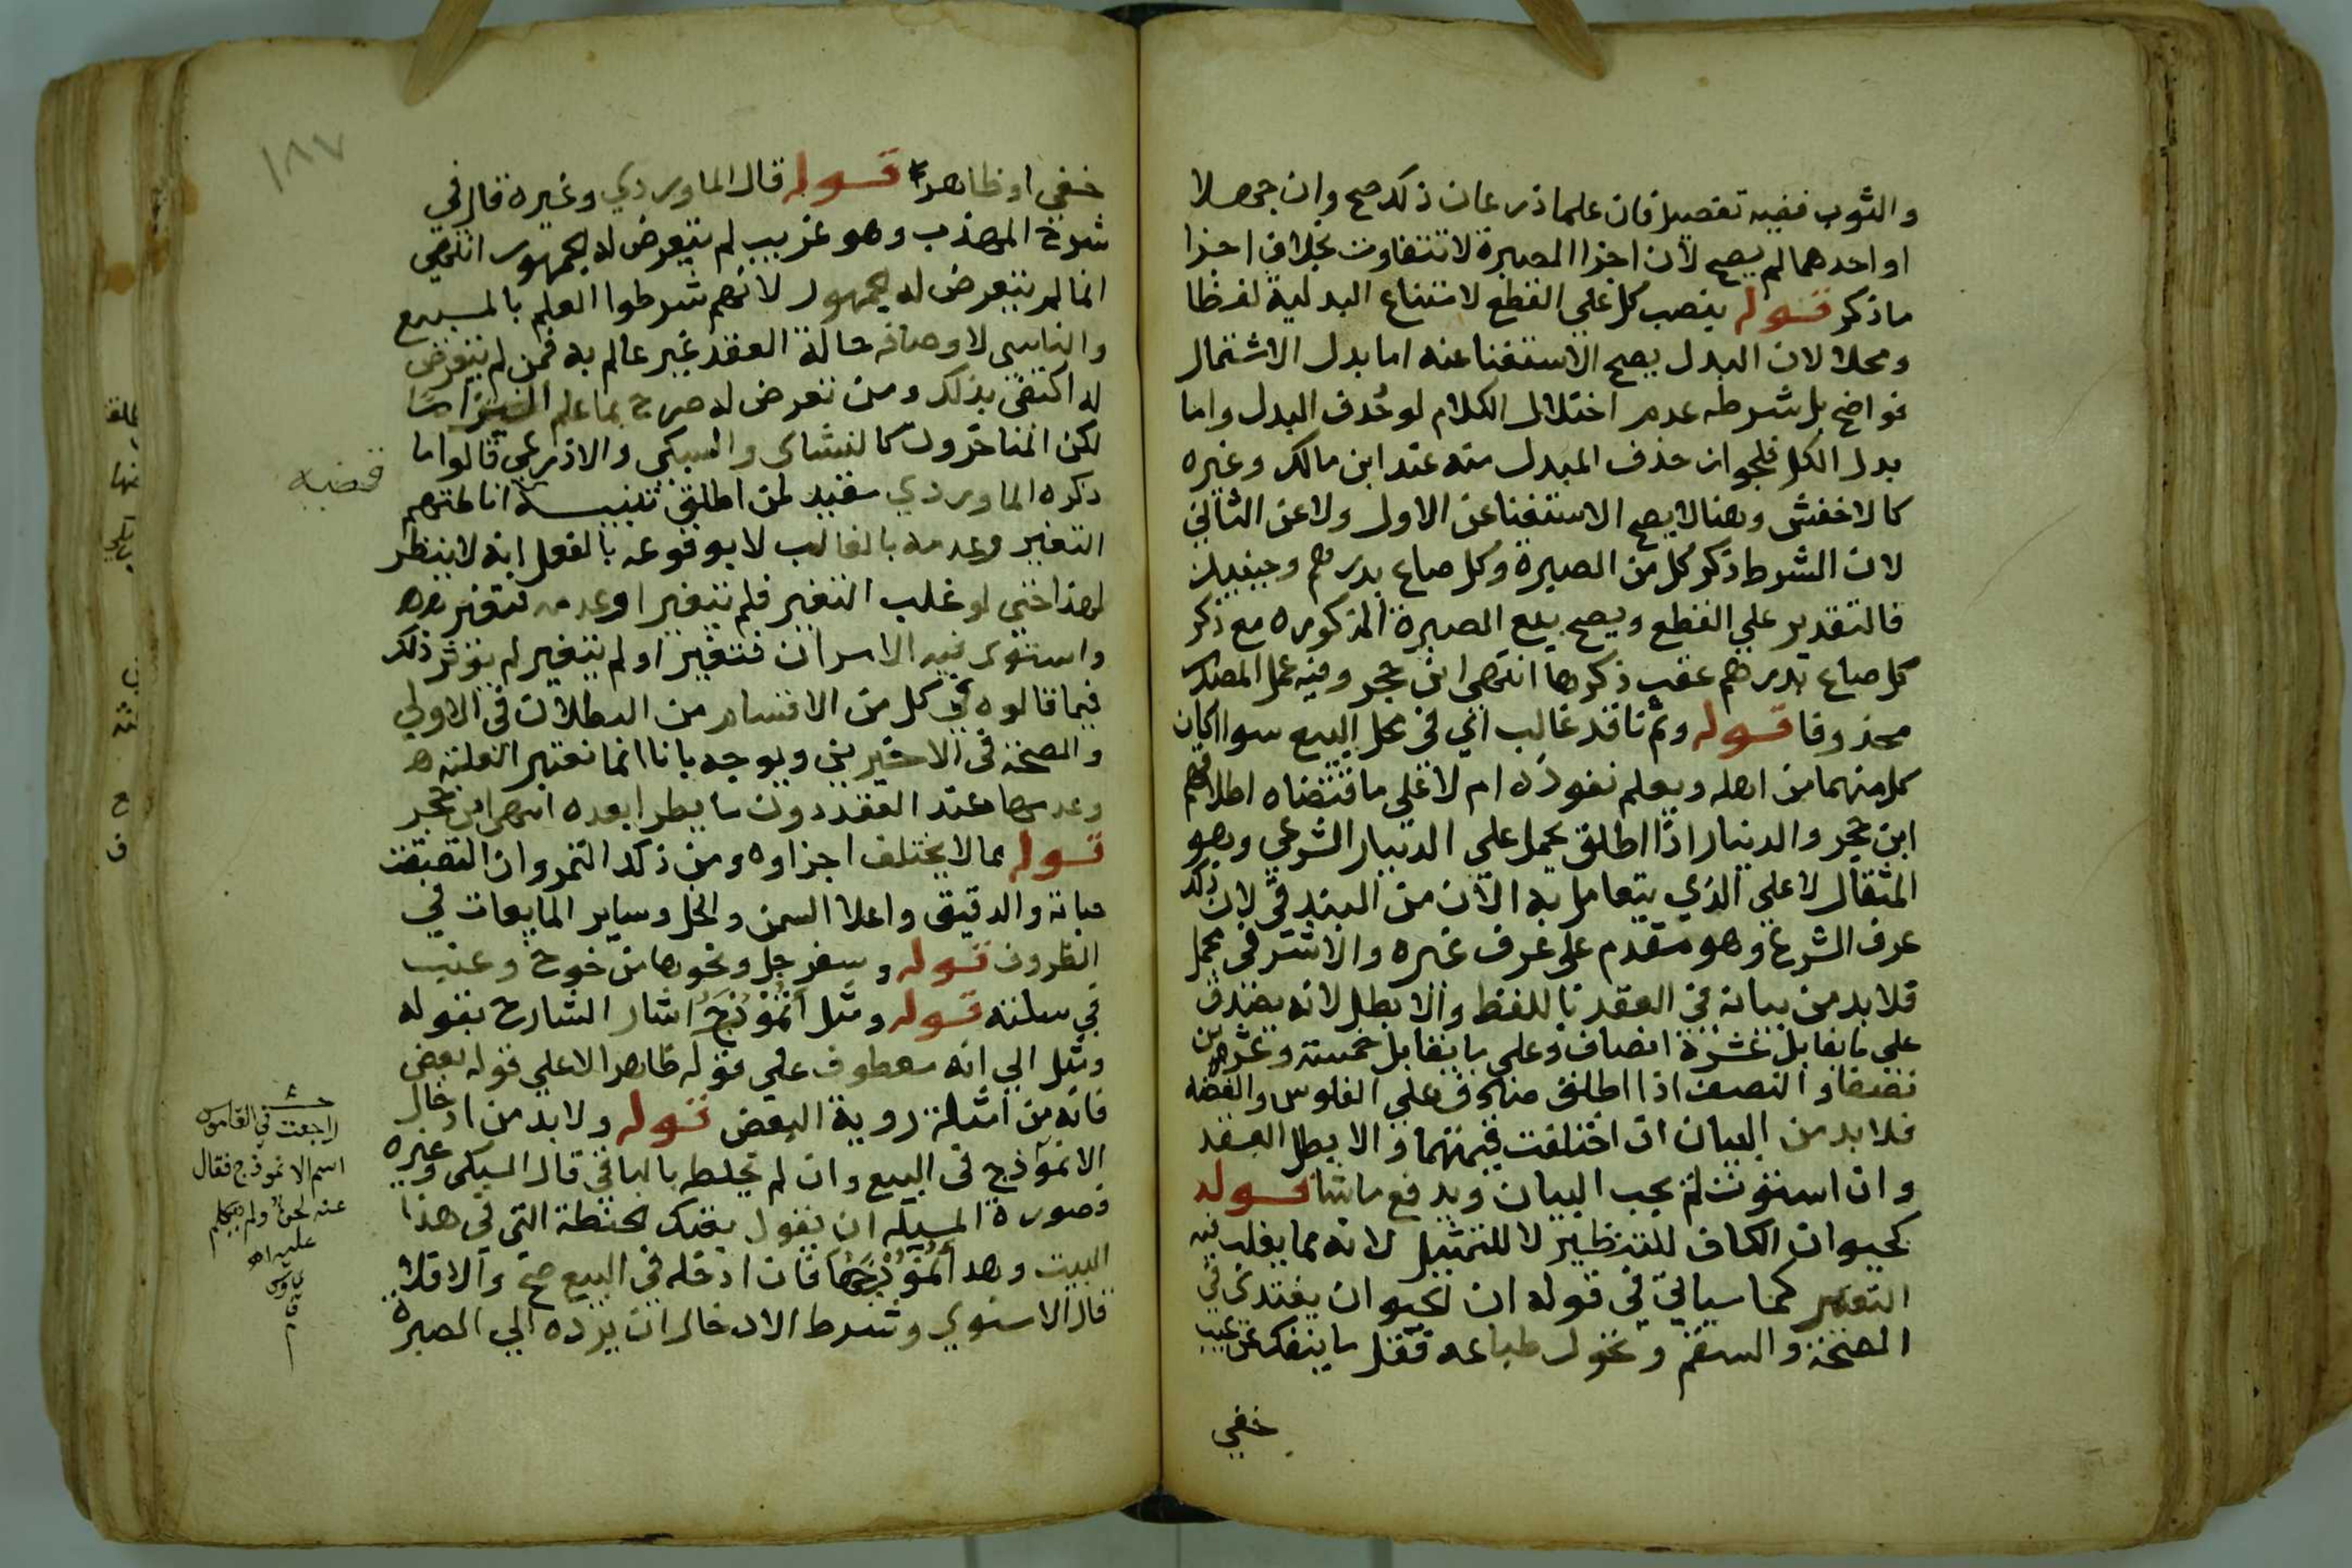 والثوب ففيه تفصيل فان علما ذرعان ذلك صح وان جهلا
او احدهما لم يصح لان اجزا الصبرة لا تتفاوت بخلاف اجزا
ما ذكر قوله ينصب كل علي القطع لامتناع البدلية لفظا
ومحلا لان البدل يصح الاستغنا عنه اما بدل الاشتمال
فواضح بل شرطه عدم اختلال الكلام لو حُذف البدل واما
بدل الكل فلجواز حذف المبدل منه عند ابن مالك وغيره
كالاخفش وهنا لا يصح الاستغنا عن الاول ولا عن الثاني
لان الشرط ذكر كل من الصبرة وكل صاع بدرهم وحينيذ
فالتقدير علي القطع ويصح بيع الصبرة المذكورة مع ذكر
كل صاع بدرهم عقب ذكرها انتهي ابن حجر وفيه عمل المصدر
محذوفا قوله وثم نا قد غالب اي في محل البيع سوا اكان
كل منهما من اهله ويعلم نفوذه ام لا علي ما اقتضاه اطلاقهم
ابن حجر والدينار اذا اطلق يحمل علي الدينار الشرعي وهو
المثقال لا علي الذي يتعامل به الان من البندقي لان ذلك
عرف الشرع وهو مقدم علي عرف غيره والاشرفي مجمل
فلابد من بيانه في العقد باللفظ والا بطل لانه يصدق
علي ما يقابل عشرة انصاف وعلي ما يقابل خمسة وعشرين
نصفا والنصف اذا اطلق منه علي الفلوس والفضة
فلابد من البيان ان اختلفت قيمتهما والا بطل العقد
وان استوت لم يجب البيان ويدفع ما شا قوله
كحيوان الكاف للتنظير لا للتمثيل لانه مما يغلب فيه
التغير كما سياتي في قوله ان الحيوان يغتذي في
الصحة والسقم وتحول طباعه فقل ما ينفك عن عيب
خفي
١٨٧
خفي او ظاهر قوله قال الماوردي وغيره قال في
شرح المهذب وهو غريب لم يتعرض له الجمهور انتهي
انما لم يتعرض له الجمهور لانهم شرطوا العلم بالمبيع
والناسي لاوصافه حالة العقد غير عالم به فمن لم يتعرض
له اكتفي بذلك ومن تعرض له صرح بما علم
لكن المتاخرون كالنشاي والسبكي والاذرعي قالوا ما
ذكره الماوردي مقيد لمن اطلق تنبيه انا طتهم
التغير وعدمه بالغالب لا بوقوعه بالفعل انه لا ينظر
لهذا حتي لو غلب التغير فلم يتغير او عدمه فتغير
واستوي فيه الامران فتغير او لم يتغير لم يؤثر ذلك
فيما قالوه في كل من الاقسام من البطلان في الاولي
والصحة في الاخيرين ويوجه بانا انما نعتبر الغلبة
وعدمها عند العقد دون ما يطرا بعده انتهي ابن حجر
قوله مما لا يختلف اجزاوه ومن ذلك التمر وان التصقت
حباته والدقيق واعلا السمن والخل وساير المايعات في
الظروف قوله وسفرجل ونحوها من خوخ وعنب
في سلته قوله ومثل انموذج اشار الشارح بقوله
ومثل الي انه معطوف علي قوله ظاهر الا علي قوله بعض
فانه من امثلة روية البعض قوله ولابد من ادخال
الانموذج في البيع وان لم يخلط بالباقي قال السبكي وغيره
وصورة المسيله ان يقول بعتك الحنطة التي في هذا
البيت وهذا انموذجها فان ادخله في البيع صح والا فلا
قال الاسنوي وشرط الادخال ان يرده الي الصبرة
قضيه
راجعت في القاموس
اسم الانموذج فقال
عنه لحن ولم يتكلم
عليه اه